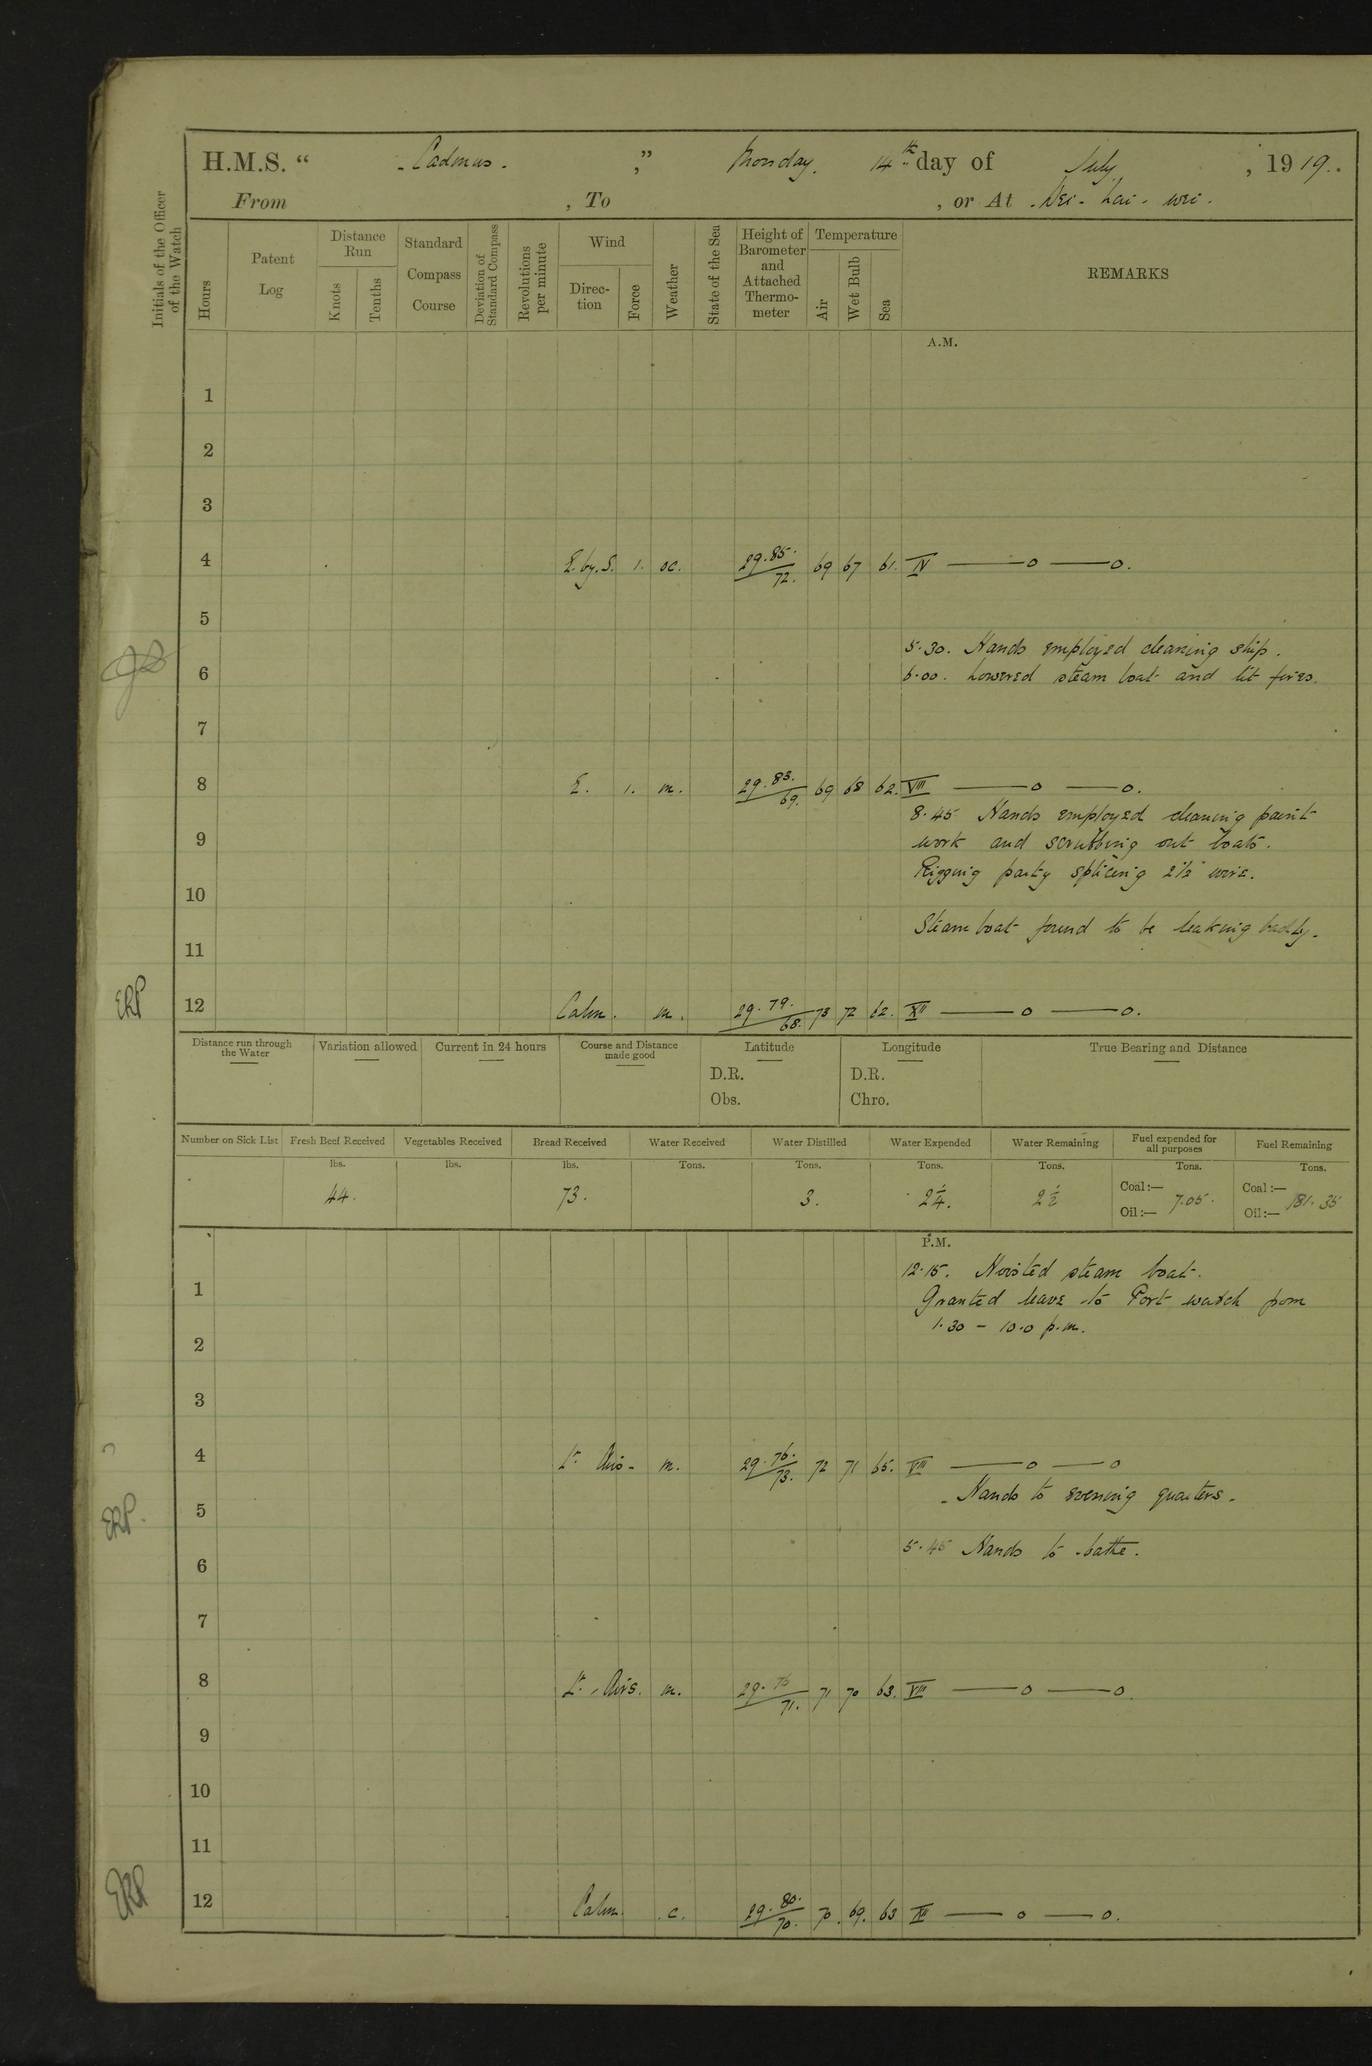 H.M.S. “ Cadmus. ” Monday. 14th day of July , 1919.
From , To , or At Wei-hai-wei.
Initials of the Officer of the Watch
Hours
Patent Log
Distance Run
Knots
Tenths
Standard Compass Course
Deviation of Standard Compass
Revolutions per minute
Wind
Direc-tion
Force
Weather
State of the Sea
Height of Barometer and Attached Thermo-meter
Temperature
Air
Wet Bulb
Sea
REMARKS
A.M.
1
2
3
4 E. by. S. 1. oc. 29.85. 72. 69 67 61. IV —— o —— o.
5
5.30. Hands employed cleaning ship.
6 6.00. Lowered steam boat and lit fires.
7
8 E. 1. m. 29.83. 69. 69 68 62. VIII —— o —— o.
8.45 Hands employed cleaning paint
9 work and scrubbing out boats.
Rigging party splicing 2½ wire.
10
Steam boat found to be leaking badly.
11
ERP 12 Calm. m. 29.79. 68. 73 72 62. XII —— o —— o.
Distance run through the Water
Variation allowed
Current in 24 hours
Course and Distance made good
Latitude
Longitude
True Bearing and Distance
D.R. D.R.
Obs. Chro.
Number on Sick List Fresh Beef Received Vegetables Received Bread Received Water Received Water Distilled Water Expended Water Remaining Fuel expended for all purposes Fuel Remaining
lbs. lbs. lbs. Tons. Tons. Tons. Tons. Tons. Tons.
44. 73. 3. 2¼. 2½ Coal:— Oil:— 7.05. Coal:— Oil:— 181.35
P.M.
12.15. Hoisted steam boat.
1 Granted leave to Port watch from
1.30 – 10.0 p.m.
2
3
4 Lt. Airs. m. 29.76. 73. 72 71 65. VIII —— o —— o
Hands to evening quarters.
ERP. 5
5.45 Hands to bathe.
6
7
8 Lt. Airs. m. 29.76 71. 71 70 63. VIII —— o —— o.
9
10
11
ERP 12 Calm. c. 29.80. 70. 70. 69. 63 XII —— o —— o.